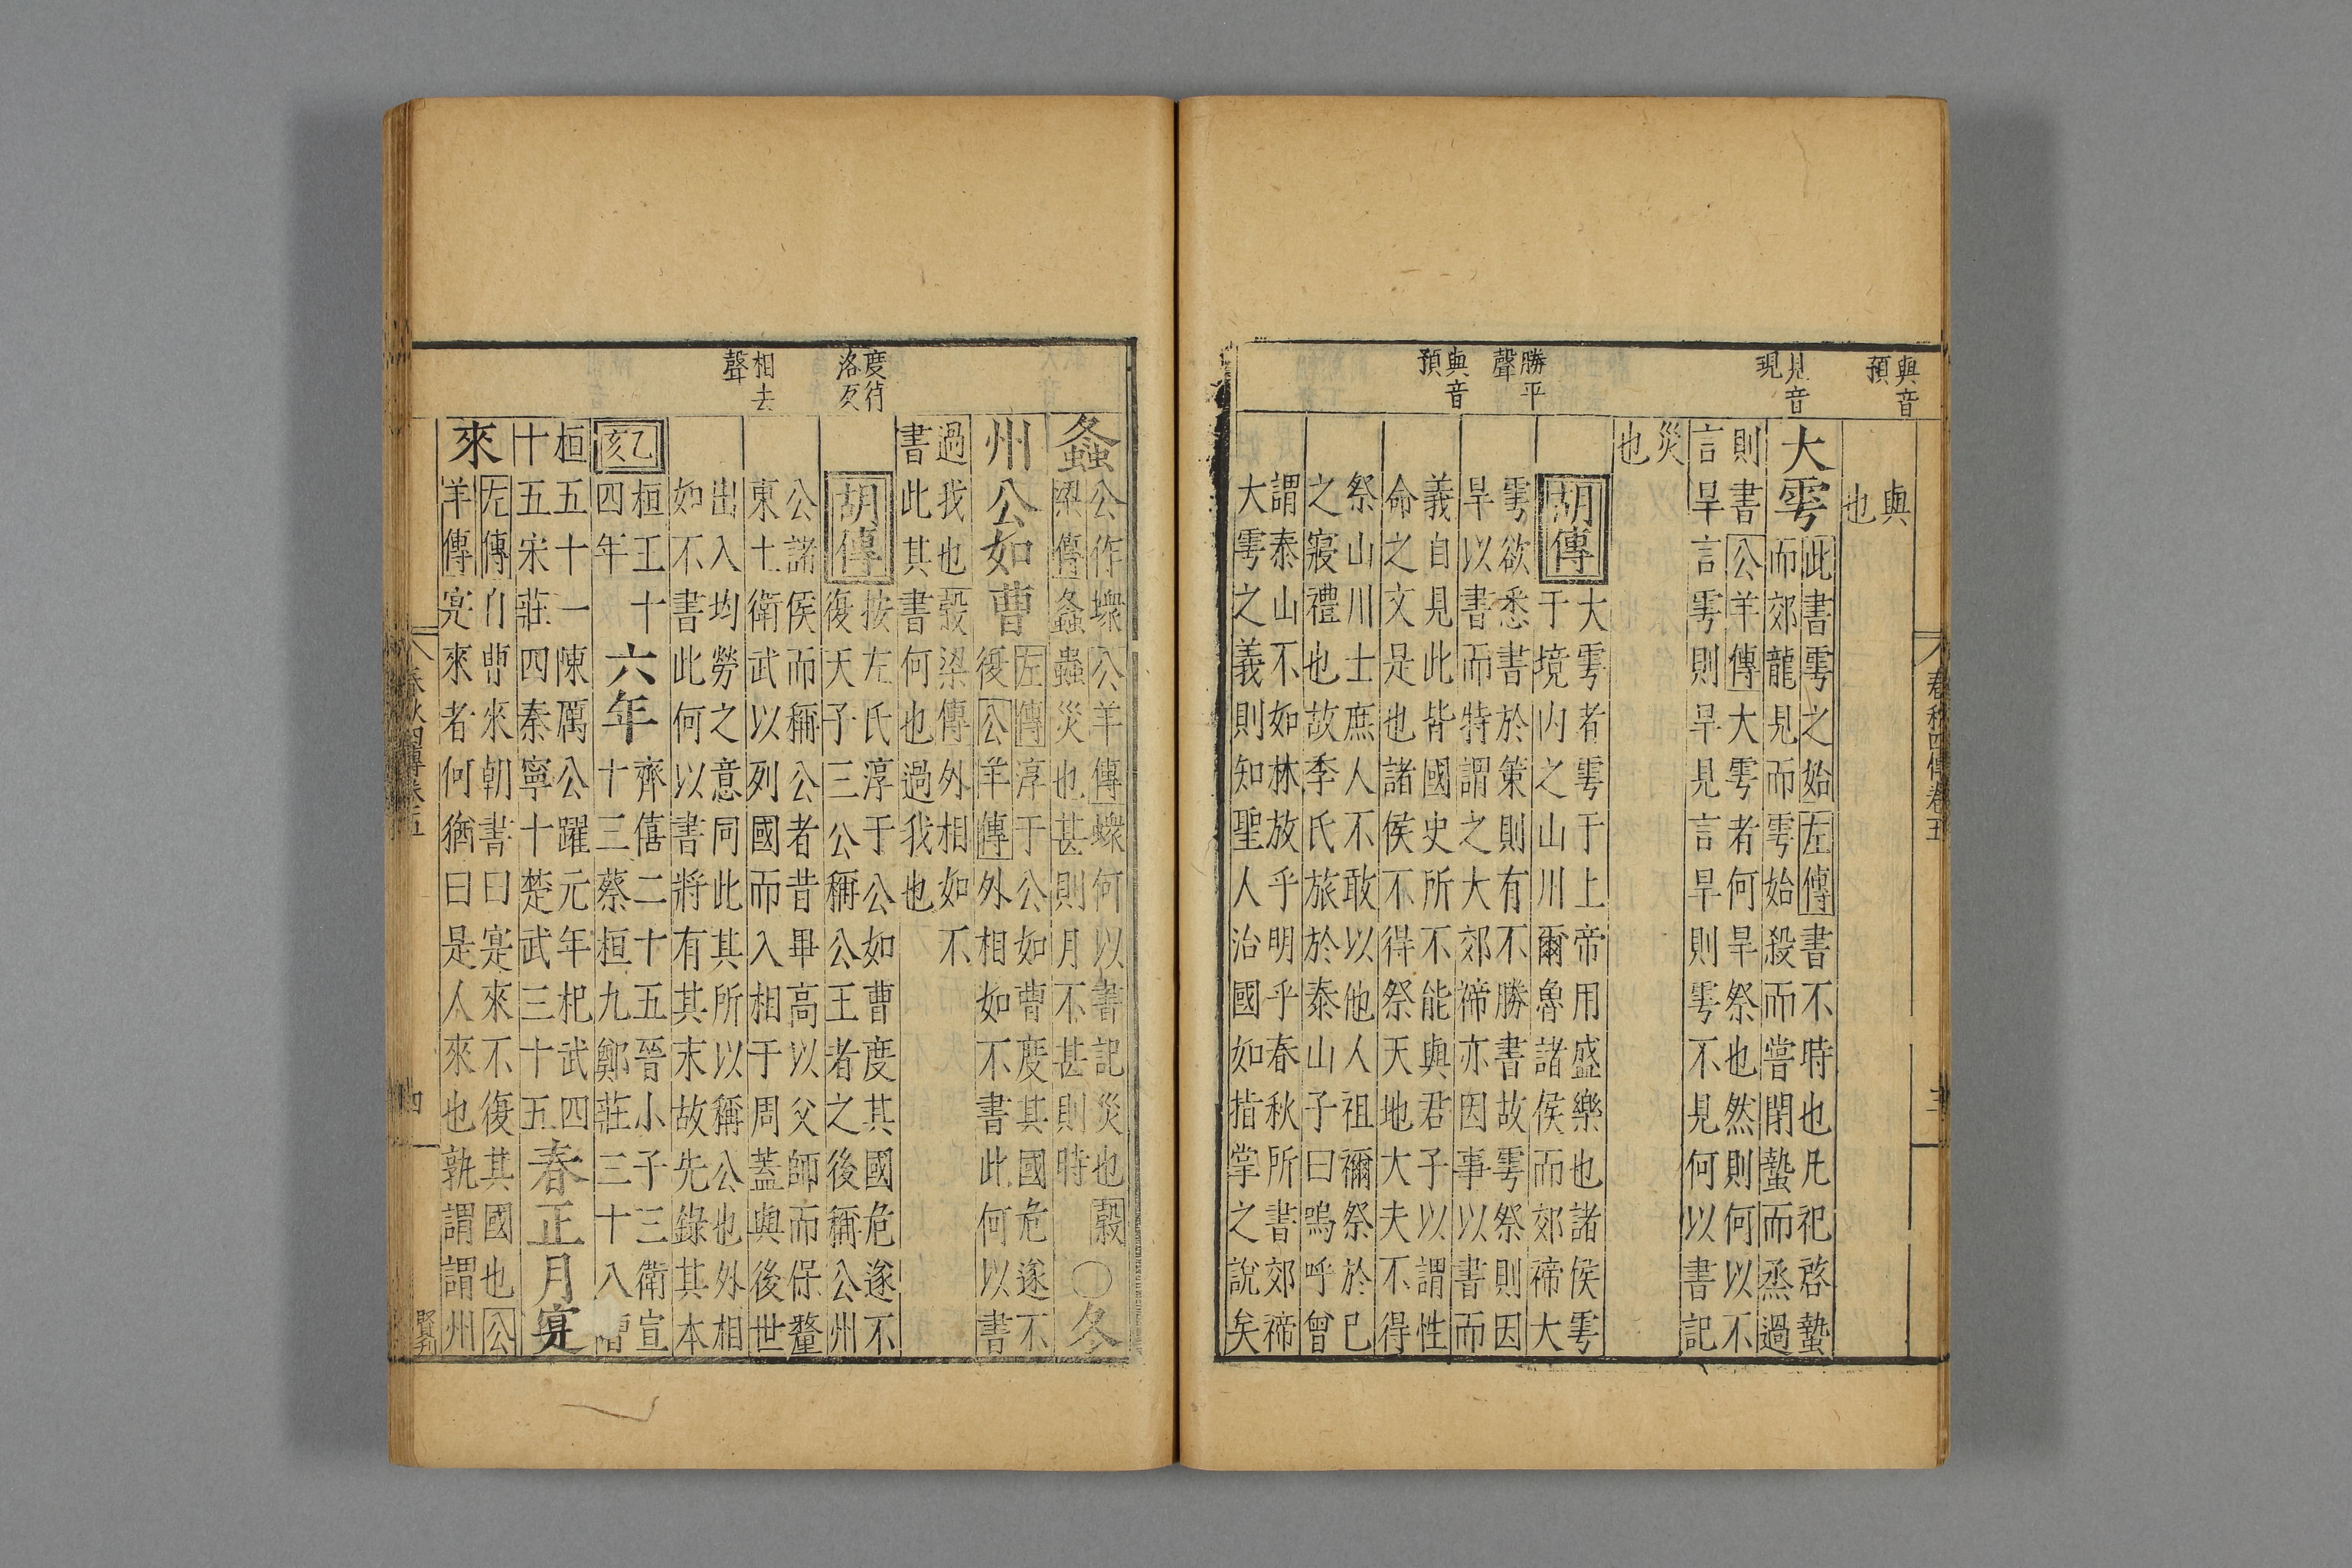 與音
預
見音
現
勝平
聲
與音
預
與
也
大雩
此書雩之始左傳書不時也凡祀啓蟄
而郊龍見而雩始殺而嘗閉蟄而烝過
則書公羊傳大雩者何旱祭也然則何以不
言旱言雩則旱見言旱則雩不見何以書記
災
也
胡傳
大雩者雩于上帝用盛樂也諸侯雩
于境内之山川爾魯諸侯而郊禘大
雩欲悉書於策則有不勝書故雩祭則因
旱以書而特謂之大郊禘亦因事以書而
義自見此皆國史所不能與君子以謂性
命之文是也諸侯不得祭天地大夫不得
祭山川士庶人不敢以他人祖禰祭於己
之寢禮也故季氏旅於泰山子曰嗚呼曾
謂泰山不如林放乎明乎春秋所書郊禘
大雩之義則知聖人治國如指掌之說矣
春秋四傳卷五
三
度待
洛反
相去
聲
螽
公作蠑公羊傳蠑何以書記災也穀
梁傳螽蟲災也甚則月不甚則時
〇冬
州公如曹
左傳淳于公如曹度其國危遂不
復公羊傳外相如不書此何以書
過我也穀梁傳外相如不
書此其書何也過我也
胡傳
按左氏淳于公如曹度其國危遂不
復天子三公稱公王者之後稱公州
公諸侯而稱公者昔畢高以父師而保釐
東土衛武以列國而入相于周蓋與後世
出入均勞之意同此其所以稱公也外相
如不書此何以書將有其末故先錄其本
乙亥
桓王十
四年
六年
齊僖二十五晉小子三衛宣
十三蔡桓九鄭莊三十八曹
桓五十一陳厲公躍元年杞武四
十五宋莊四秦寧十楚武三十五
春正月寔
來
左傳自曹來朝書曰寔來不復其國也公
羊傳寔來者何猶曰是人來也孰謂謂州
春秋四傳卷五
四